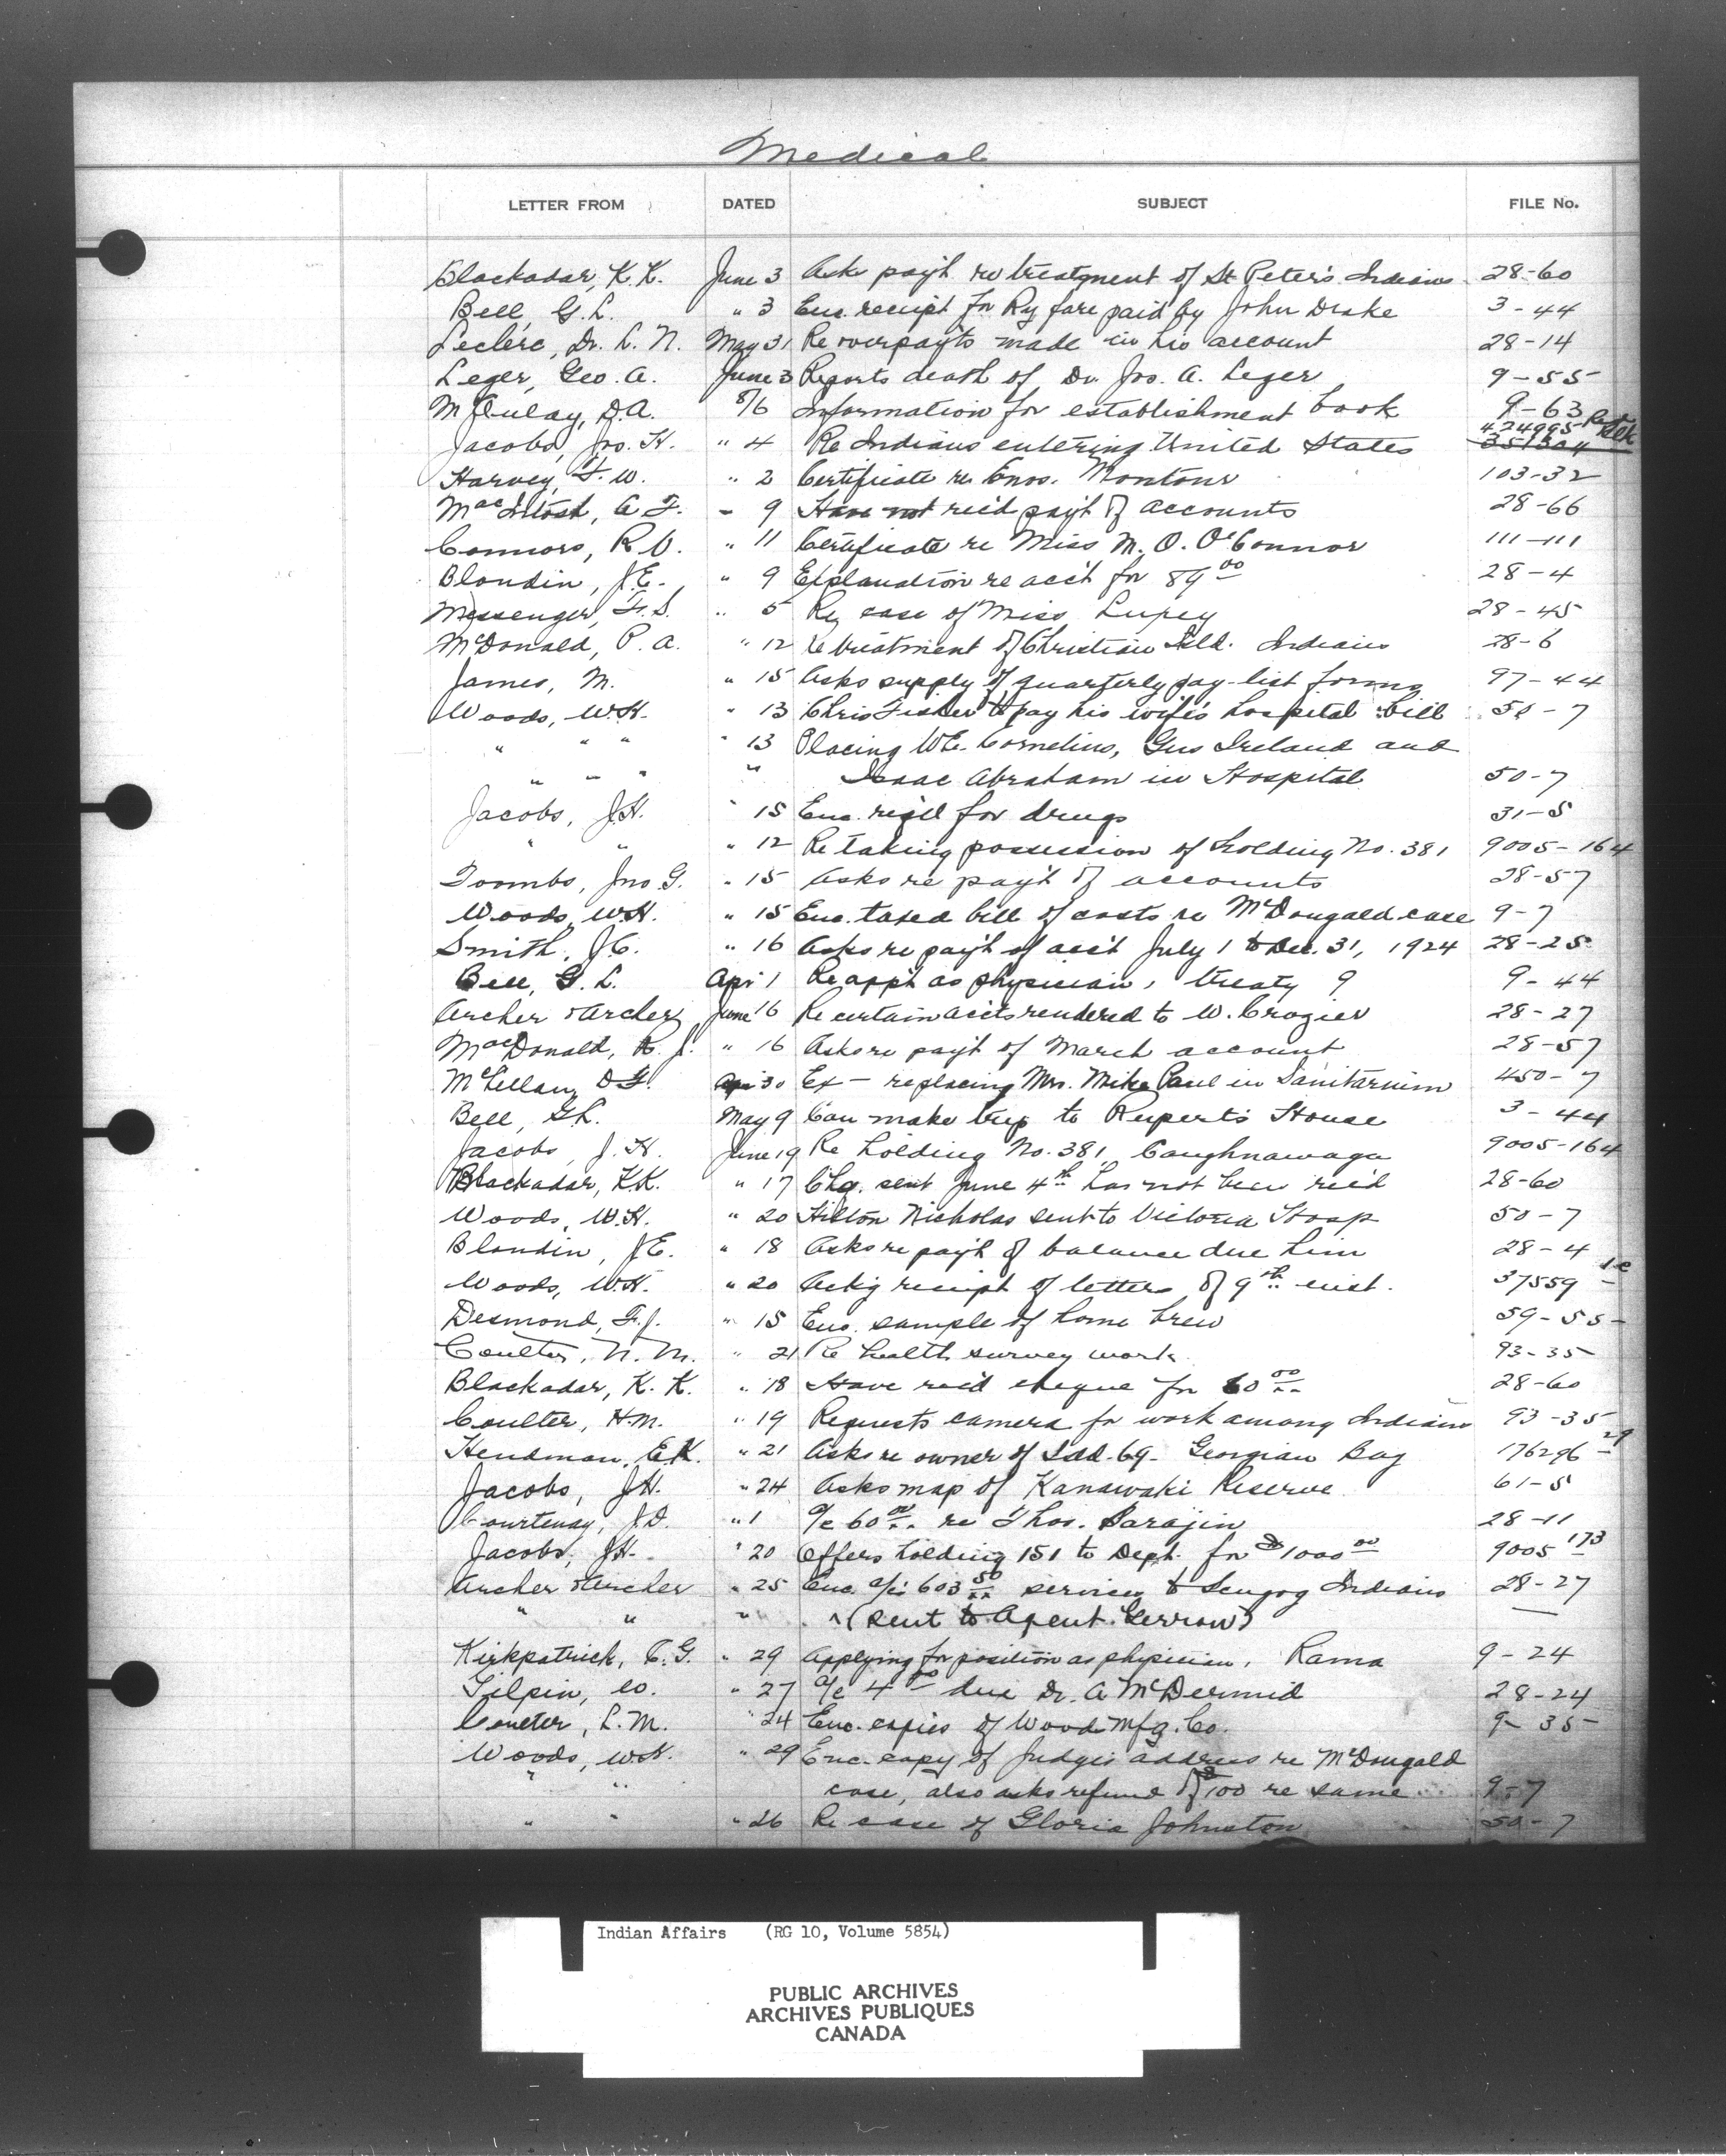 Medical
LETTER FROM DATED SUBJECT FILE No.
Blackadar, K.K. June 3 Asks pay't re treatment of St Peter's Indians 28-60
Bell, G.L. " 3 Enc. receipt for Ry fare paid by John Drake 3-44
Leclerc, Dr. L. N. May 31 Re overpay'ts made in his account 28-14
Leger, Geo. A. June 3 Reports death of Dr. Jos. A. Leger 9-55
McAulay, D.A. 8/6 Information for establishment book 9-63
Jacobs, Jos. H. " 4 Re Indians entering United States 424995 351304
Harvey, F.W. " 2 Certificate re Enos. Montour 103-32
MacIntosh, A F. " 9 Have not rec'd pay't of accounts 28-66
Connors, R V. " 11 Certificate re Miss M. O. O'Connor 111-111
Blondin, J.E. " 9 Explanation re acc't for 89 00 28-4
Messenger, F.S. " 5 Re case of Miss Lupey 28-45
McDonald, P. A. " 12 Re treatment of Christian Isld. Indians 28-6
James, M. " 15 Asks supply of quarterly pay-list forms 97-44
Woods, W.H. " 13 Chris Fisher to pay his wife's hospital bill 50-7
" " " " 13 Placing WE. Cornelius, Gus Ireland and
" " " " Isaac Abraham in Hospital 50-7
Jacobs, J.H. " 15 Enc. req'n for drugs 31-5
" " " 12 Re taking possession of holding No. 381 9005-164
Toombs, Jno G. " 15 Asks re pay't of accounts 28-57
Woods, W.H. " 15 Enc. taxed bill of costs re McDougald case 9-7
Smith, J.C. " 16 Asks re pay't of acc't July 1 to Dec. 31, 1924 28-25
Bell, G. L. Apr 1 Re app't as physician, treaty 9 9-44
Archer & Archer June 16 Re certain acc'ts rendered to W. Crozier 28-27
MacDonald, R. J. " 16 Asks re pay't of March account 28-57
McLellan, D F. Apr 30 Ex - replacing Mrs. Mike Paul in Sanitarium 450-7
Bell, G.L. May 9 Can make trip to Rupert's House 3-44
Jacobs, J. H. June 19 Re holding No. 381 Caughnawaga 9005-164
Blackadar, K.K. " 17 Chq. sent June 4th has not been rec'd 28-60
Woods, W.H. " 20 Hilton Nicholas sent to Victoria Hosp 50-7
Blondin, J.E. " 18 Asks re pay't of balance due him 28-4
Woods, W.H. " 20 Ack'g receipt of letters of 9th inst. 37559
Desmond, F.J. " 15 Enc. sample of home brew 59-55
Coulter, N. M. " 21 Re health survey work 93-35
Blackadar, K. K. " 18 Have rec'd cheque for 60 00 28-60
Coulter, H.M. " 19 Requests camera for work among Indians 93-35
Hendman, E.K. " 21 Asks re owner of Isld. 69 - Georgian Bay 176296-29
Jacobs, J.H. " 24 Asks map of Kanawaki Reserve 61-5
Courtenay, J.D. " 1 a/c 60 00 re Thos. Sarazin 28-11
Jacobs, J.H. " 20 Offers holding 151 to Dept. for $1000 00 9005-173
Archer & Archer " 25 Enc. a/c 603 50 services to Scugog Indians 28-27
" " " (sent to Agent Gerrow) —
Kirkpatrick, C.G. " 29 Applying for position as physician, Rama 9-24
Gilpin, W. " 27 a/c 4 00 due Dr. A McDermid 28-24
Coulter, L.M. " 24 Enc. copies of Wood Mfg. Co. 9-35
Woods, W.H. " 29 Enc. copy of Judge's address re McDougald
" " case, also asks refund of $100 re same 9-7
" " " 26 Re case of Gloria Johnston 50-7
Indian Affairs (RG 10, Volume 5854)
PUBLIC ARCHIVES
ARCHIVES PUBLIQUES
CANADA